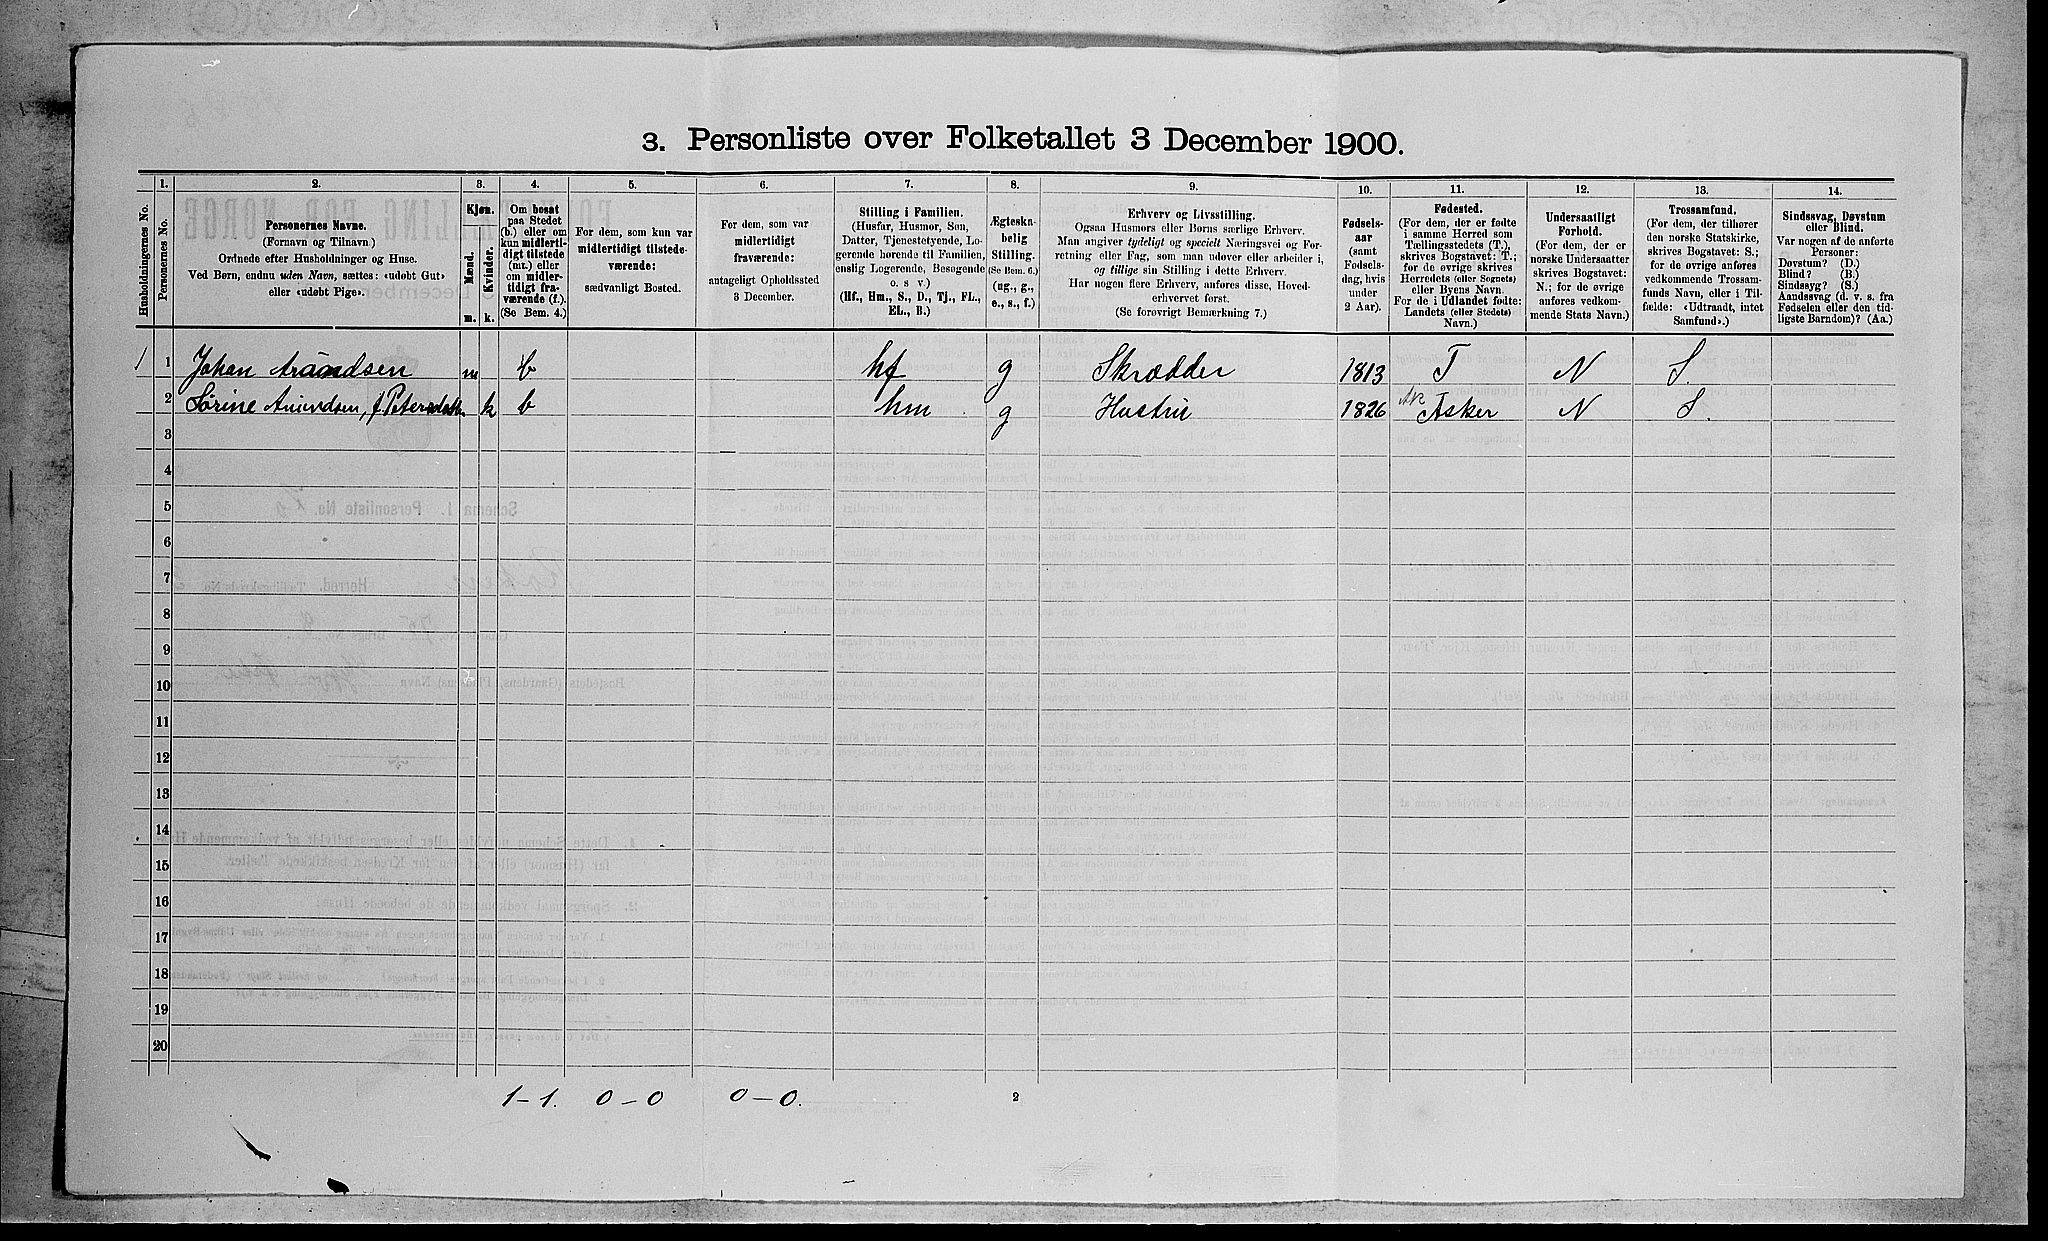 3. Personliste over Folketallet 3 December 1900.
Husholdningernes No.
1. Personernes No.
2. Personernes Navne.
(Fornavn og Tilnavn.)
Ordnede efter Husholdninger og Huse.
Ved Børn, endnu uden Navn, sættes: «udøbt Gut»
eller «udøbt Pige».
3. Kjøn.
Mænd. m.
Kvinder. k.
4. Om bosat
paa Stedet
(b.) eller om
kun midlerti-
digt tilstede
(mt.) eller
om midler-
tidigt fra-
værende (f.).
(Se Bem. 4.)
5. For dem, som kun var
midlertidigt tilstede-
værende:
sædvanligt Bosted.
6. For dem, som var
midlertidigt
fraværende:
antageligt Opholdssted
3 December.
7. Stilling i Familien.
(Husfar, Husmor, Søn,
Datter, Tjenestetyende, Lo-
gerende hørende til Familien,
enslig Logerende, Besøgende
o. s. v.)
(Hf., Hm., S., D., Tj., FL.,
EL., B.)
8. Ægteska-
belig
Stilling.
(Se Bem. 6.)
(ug., g.,
e., s., f.)
9. Erhverv og Livsstilling.
Ogsaa Husmors eller Børns særlige Erhverv.
Man angiver tydeligt og specielt Næringsvei og For-
retning eller Fag, som man udøver eller arbeider i,
og tillige sin Stilling i dette Erhverv.
Har nogen flere Erhverv, anføres disse, Hoved-
erhvervet først.
(Se forøvrigt Bemærkning 7.)
10. Fødsels-
aar
(samt
Fødsels-
dag, hvis
under
2 Aar).
11. Fødested.
(For dem, der er fødte
i samme Herred som
Tællingsstedets (T.),
skrives Bogstavet: T.;
for de øvrige skrives
Herredets (eller Sognets)
eller Byens Navn.
For de i Udlandet fødte:
Landets (eller Stedets)
Navn.)
12. Undersaatligt
Forhold.
(For dem, der er
norske Undersaatter
skrives Bogstavet:
N.; for de øvrige
anføres vedkom-
mende Stats Navn.)
13. Trossamfund.
(For dem, der tilhører
den norske Statskirke,
skrives Bogstavet: S.;
for de øvrige anføres
vedkommende Trossam-
funds Navn, eller i Til-
fælde: «Udtraadt, intet
Samfund».)
14. Sindssvag, Døvstum
eller Blind.
Var nogen af de anførte
Personer:
Døvstum? (D.)
Blind? (B.)
Sindssyg? (S.)
Aandssvag (d. v. s. fra
Fødselen eller den tid-
ligste Barndom)? (Aa.)
1 1 Johan m b hf g Skrædder 1813 T N S.
2 Sørine Amundsen, f. Petersdatter k b hm g Hustru 1826 Ak Asker N S.
3
4
5
6
7
8
9
10
11
12
13
14
15
16
17
18
19
20
1-1. 0-0 0-0. 2